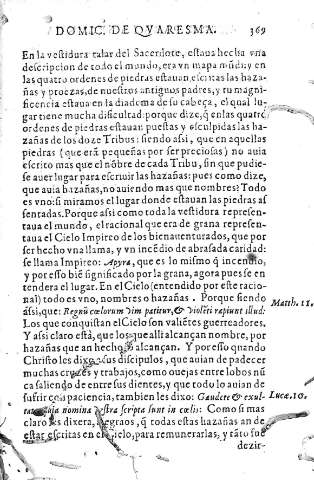 DOMIC. DE QVARESMA. 369
En la vestidura talar del Sacerdote, estaua hecha vna
descripcion de todo el mundo, era vn mapa mũdi: y en
las quatro ordenes de piedras estauan escritas las haza-
ñas y proezas, de nuestros antiguos padres, y tu magni-
ficencia estaua en la diadema de su cabeça, el qual lu-
gar tiene mucha dificultad: porque dize, q̃ en las quatro
ordenes de piedras estauan puestas y esculpidas las ha-
zañas de los doze Tribus: siendo assi, que en aquellas
piedras (que erã pequeñas por ser preciosas) no auia
escrito mas que el nõbre de cada Tribu, sin que pudie-
se auer lugar para escriuir las hazañas: pues como dize,
que auia hazañas, no auiendo mas que nombres? Todo
es vno: si miramos el lugar donde estauan las piedras as
sentadas. Porque assi como toda la vestidura represen-
taua el mundo, el racional que era de grana represen-
taua el Cielo Impireo de los bienauenturados, que por
ser hecho vna llama, y vn incẽdio de abrasada caridad:
se llama Impireo: Apyra, que es lo mismo q̃ incendio,
y por esso biẽ significado por la grana, agora pues se en-
tendera el lugar. En el Cielo (entendido por este racio-
nal) todo es vno, nombres o hazañas. Porque siendo
assi, que: Regnũ cœlorum vim patitur, & violẽti rapiunt illud: Matth. 11.
Los que conquistan el Cielo son valiẽtes guerreadores.
Y assi claro està, que los que alli alcançan nombre, por
hazañas que an hecho le alcançan. Y por esso quando
Christo les dixo a sus discipulos, que auian de padecer
muchas cruzes y trabajos, como ouejas entre lobos nũ
ca saliendo de entre sus dientes, y que todo lo auian de
sufrir con paciencia, tambien les dixo: Gaudete & exul- Luca. 10.
tate, quia nomina vestra scripta sunt in cœlis: Como si mas
claro les dixera, alegraos, q̃ todas estas hazañas an de
estar escritas en el cielo, para remunerarlas, y tãto fue
dezir-